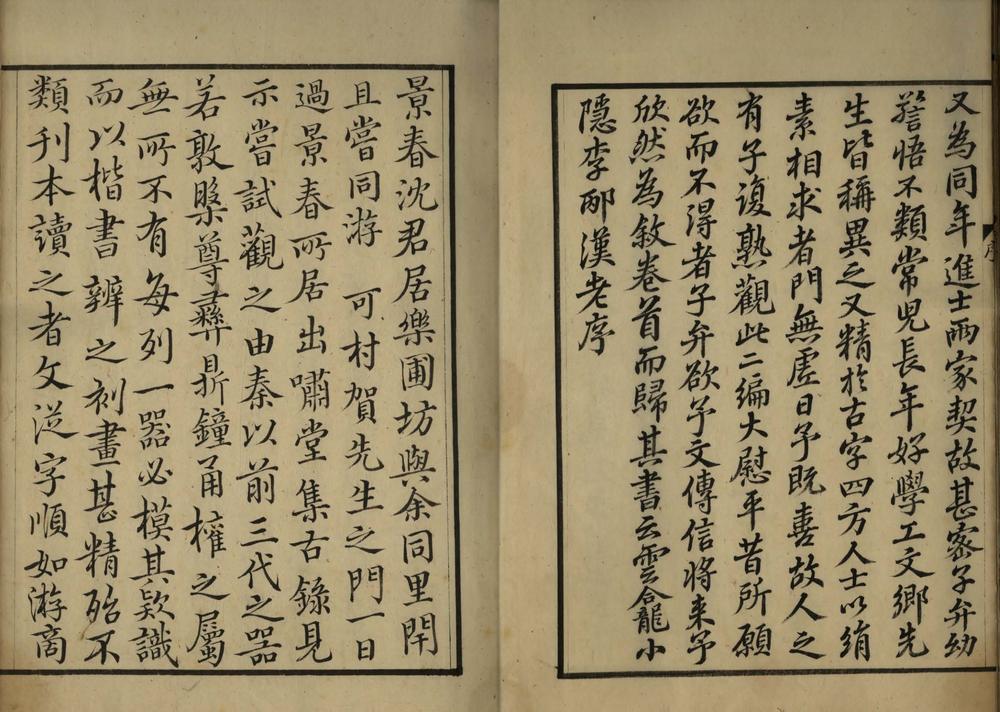 又為同年進士兩家契故甚密子弁幼
警悟不類常児長年好學工文鄉先
生皆稱異之又精於古字四方人士以絹
素相求者門無虛日予既喜故人之
有子復熟觀此二編大慰平昔所願
欲而不得者子弁欲予文傳信将来予
欣然為敘卷首而歸其書云雲龕小
隱李邴漢老序
序
景春沈君居樂圃坊與余同里閈
且嘗同游可村賀先生之門一日
過景春所居出嘯堂集古錄見
示嘗試觀之由秦以前三代之器
若敦槃尊彝鼎鐘甬權之屬
無所不有每列一器必模其款識
而以楷書辨之刻畫甚精殆不
類刊本讀之者文從字順如游商